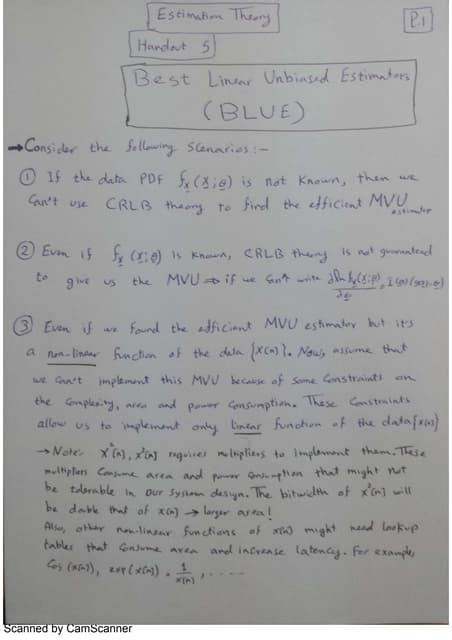 Estimation Theory
P.1
Handout 5
Best Linear Unbiased Estimators
(BLUE)
→Consider the following Scenarios:-
① If the data PDF f_x(x;θ) is not known, then we
Can't use CRLB theory to find the efficient MVU
estimator
② Even if f_x(x;θ) is known, CRLB theory is not guaranteed
to give us the MVU ⇒ if we can't write ∂ln f_x(x;θ)/∂θ = I(θ)(g(x)-θ)
③ Even if we found the efficient MVU estimator but it's
a non-linear function of the data {x[n]}. Now, assume that
we can't implement this MVU because of some Constraints on
the Complexity, area and power Consumption. These Constraints
allow us to implement only linear function of the data {x[n]}
→Note: x²[n], x³[n] requires multipliers to implement them. These
multipliers Consume area and power Consumption that might not
be tolerable in our system design. The bitwidth of x²[n] will
be double that of x[n] → larger area!
Also, other non-linear functions of x[n] might need lookup
tables that Consume area and increase latency. For example,
Cos(x[n]), exp(x[n]), 1/x[n], .....
Scanned by CamScanner